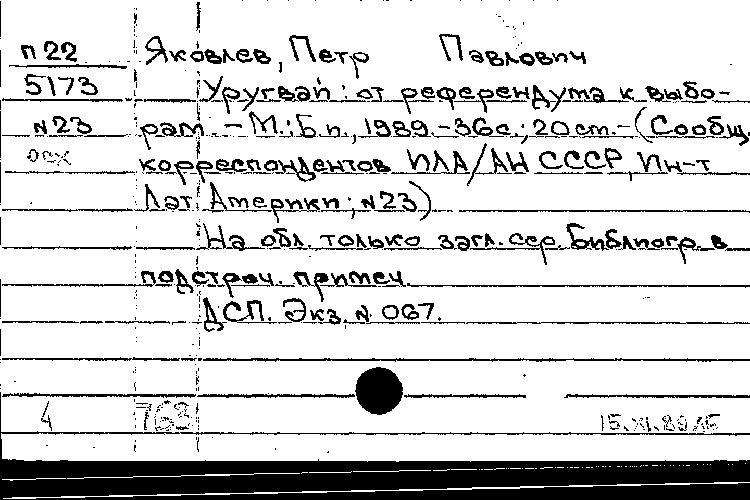 п 22 Яковлев, Петр Павлович
5173 Уругвай: от референдума к выбо-
N23 рам. - М.: Б.и., 1989. - 36с.; 20 cm. - (Сообщ.
осх корреспондентов ИЛА/АН СССР, Ин-т
Лат. Америки; N23)
На обл. только загл. сер. Библиогр. в
подстроч. примеч.
ДСП. Экз. N 067.
4 763 15.XI.89